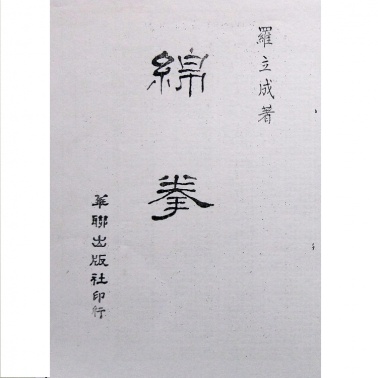 羅立成著
綿拳
華聯出版社印行